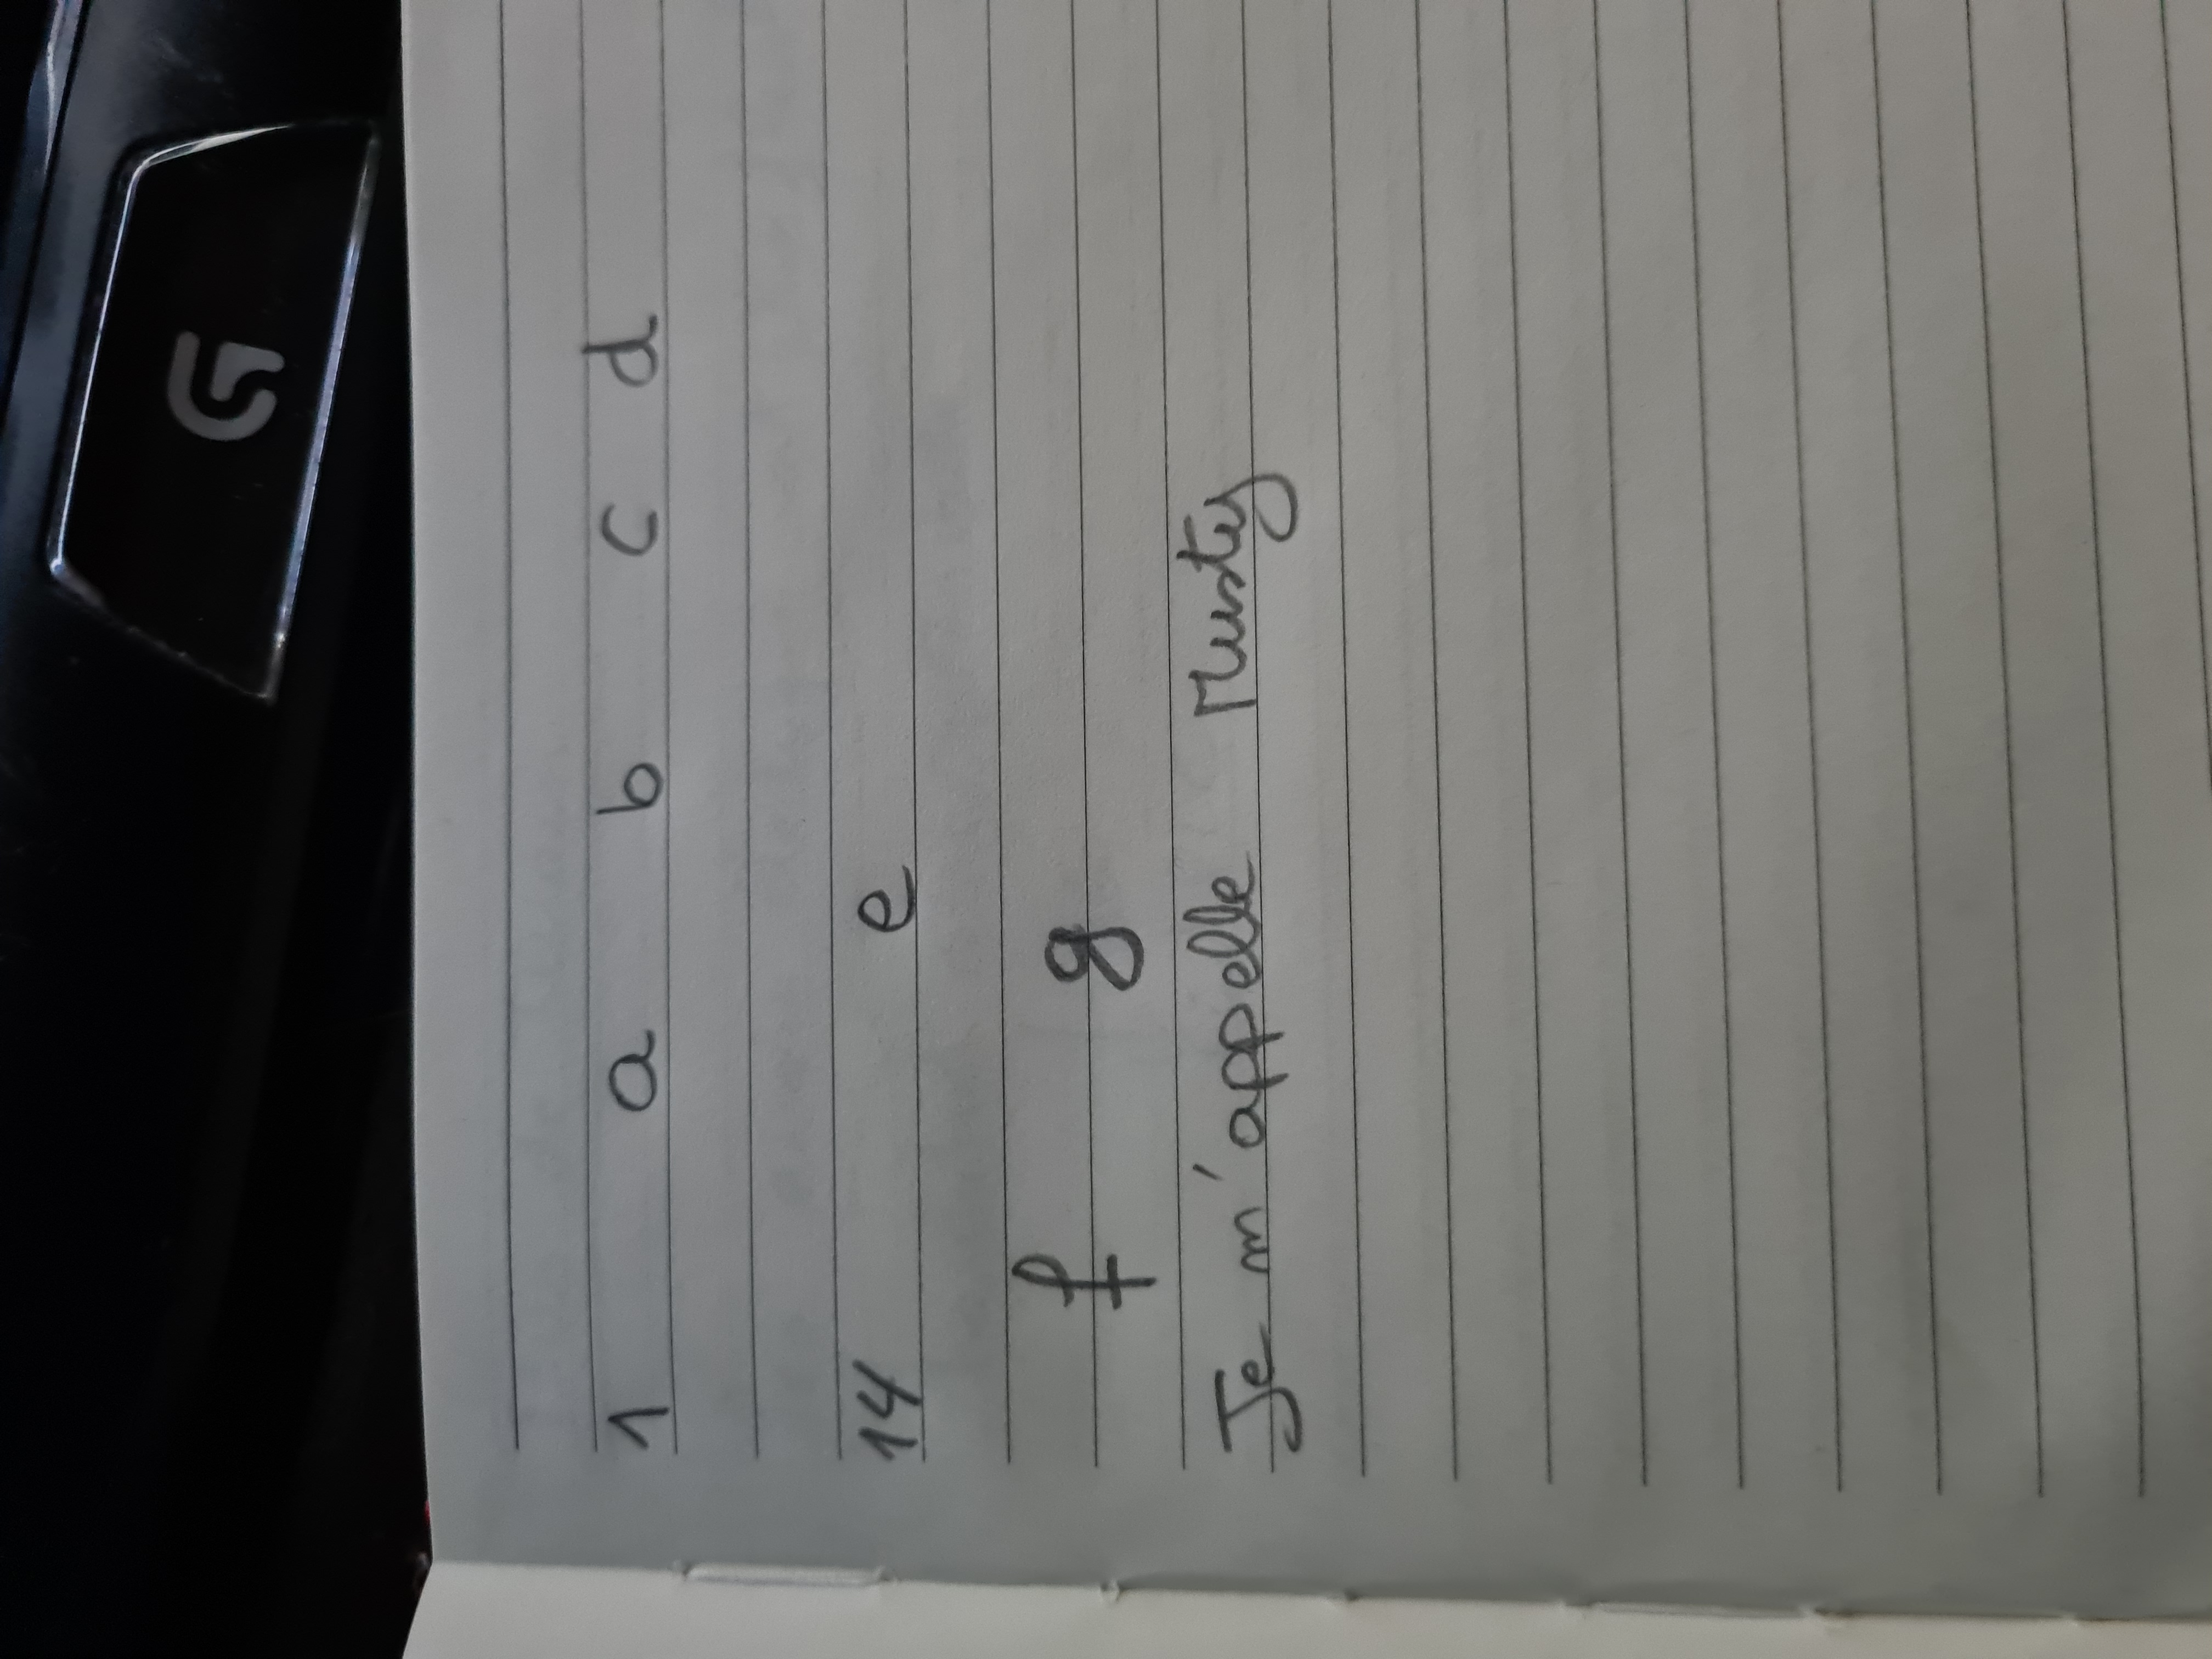 G
1 a b c d
14 e
f g
Je m'appelle Musty